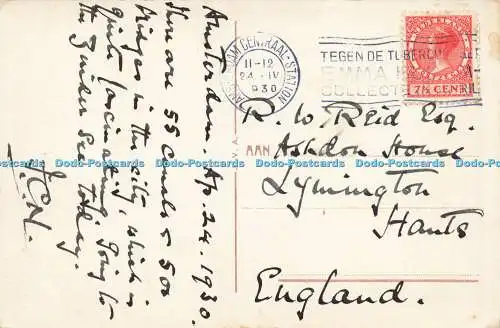 Amsterdam. Ap. 24. 1930.
There are 55 canals & 500
Bridges in the city, which is
quite fascinating. Going to
the Zuider See today.
J.C.N.
AMSTERDAM CENTRAAL-STATION
11-12
24.IV
1930
TEGEN DE TUBERCU
EMMA
COLLECTE
NEDERLAND
7½ CENT
AAN
R. W. Reid Esq.
Ashdon House
Lymington
Hants
England.
Dodo-Postcards Dodo-Postcards Dodo-Postcards Dodo-Postcards Dodo-Postcards Dodo-Postcards